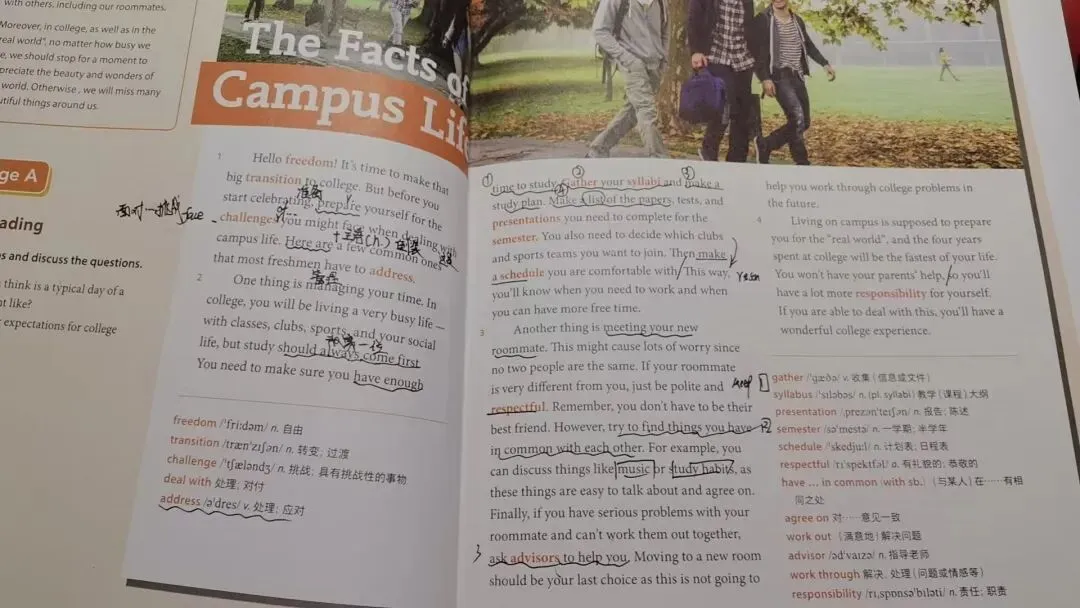 with others, including our roommates.
Moreover, in college, as well as in the
"real world", no matter how busy we
e, we should stop for a moment to
preciate the beauty and wonders of
world. Otherwise, we will miss many
utiful things around us.
ge A
ading
s and discuss the questions.
think is a typical day of a
nt like?
expectations for college
The Facts of
Campus Lif
1
Hello freedom! It's time to make that
big transition to college. But before you
准备
start celebrating, prepare yourself for the
面对一挑战 face
challenges you might face when dealing with
campus life. Here are a few common ones
that most freshmen have to address.
管理
2
One thing is managing your time. In
college, you will be living a very busy life —
with classes, clubs, sports, and your social
放第一位
life, but study should always come first
You need to make sure you have enough
freedom /ˈfriːdəm/ n. 自由
transition /trænˈzɪʃən/ n. 转变; 过渡
challenge /ˈtʃæləndʒ/ n. 挑战; 具有挑战性的事物
deal with 处理; 对付
address /əˈdres/ v. 处理; 应对
① ② ③
time to study. Gather your syllabi and make a
④
study plan. Make a list of the papers, tests, and
presentations you need to complete for the
semester. You also need to decide which clubs
and sports teams you want to join. Then make
a schedule you are comfortable with. This way,
you'll know when you need to work and when
you can have more free time.
3
Another thing is meeting your new
roommate. This might cause lots of worry since
no two people are the same. If your roommate
is very different from you, just be polite and
respectful. Remember, you don't have to be their
best friend. However, try to find things you have
in common with each other. For example, you
can discuss things like music or study habits, as
these things are easy to talk about and agree on.
Finally, if you have serious problems with your
roommate and can't work them out together,
3
ask advisors to help you. Moving to a new room
should be your last choice as this is not going to
help you work through college problems in
the future.
4
Living on campus is supposed to prepare
you for the "real world", and the four years
spent at college will be the fastest of your life.
You won't have your parents' help, so you'll
have a lot more responsibility for yourself.
If you are able to deal with this, you'll have a
wonderful college experience.
gather /ˈɡæðə/ v. 收集 (信息或文件)
syllabus /ˈsɪləbəs/ n. (pl. syllabi) 教学 (课程) 大纲
presentation /ˌprezənˈteɪʃən/ n. 报告; 陈述
semester /səˈmestə/ n. 一学期; 半学年
schedule /ˈskedjuːl/ n. 计划表; 日程表
respectful /rɪˈspektfəl/ a. 有礼貌的; 恭敬的
have ... in common (with sb.) (与某人) 在……有相
同之处
agree on 对……意见一致
work out (满意地) 解决问题
advisor /ədˈvaɪzə/ n. 指导老师
work through 解决, 处理 (问题或情感等)
responsibility /rɪˌspɒnsəˈbɪləti/ n. 责任; 职责